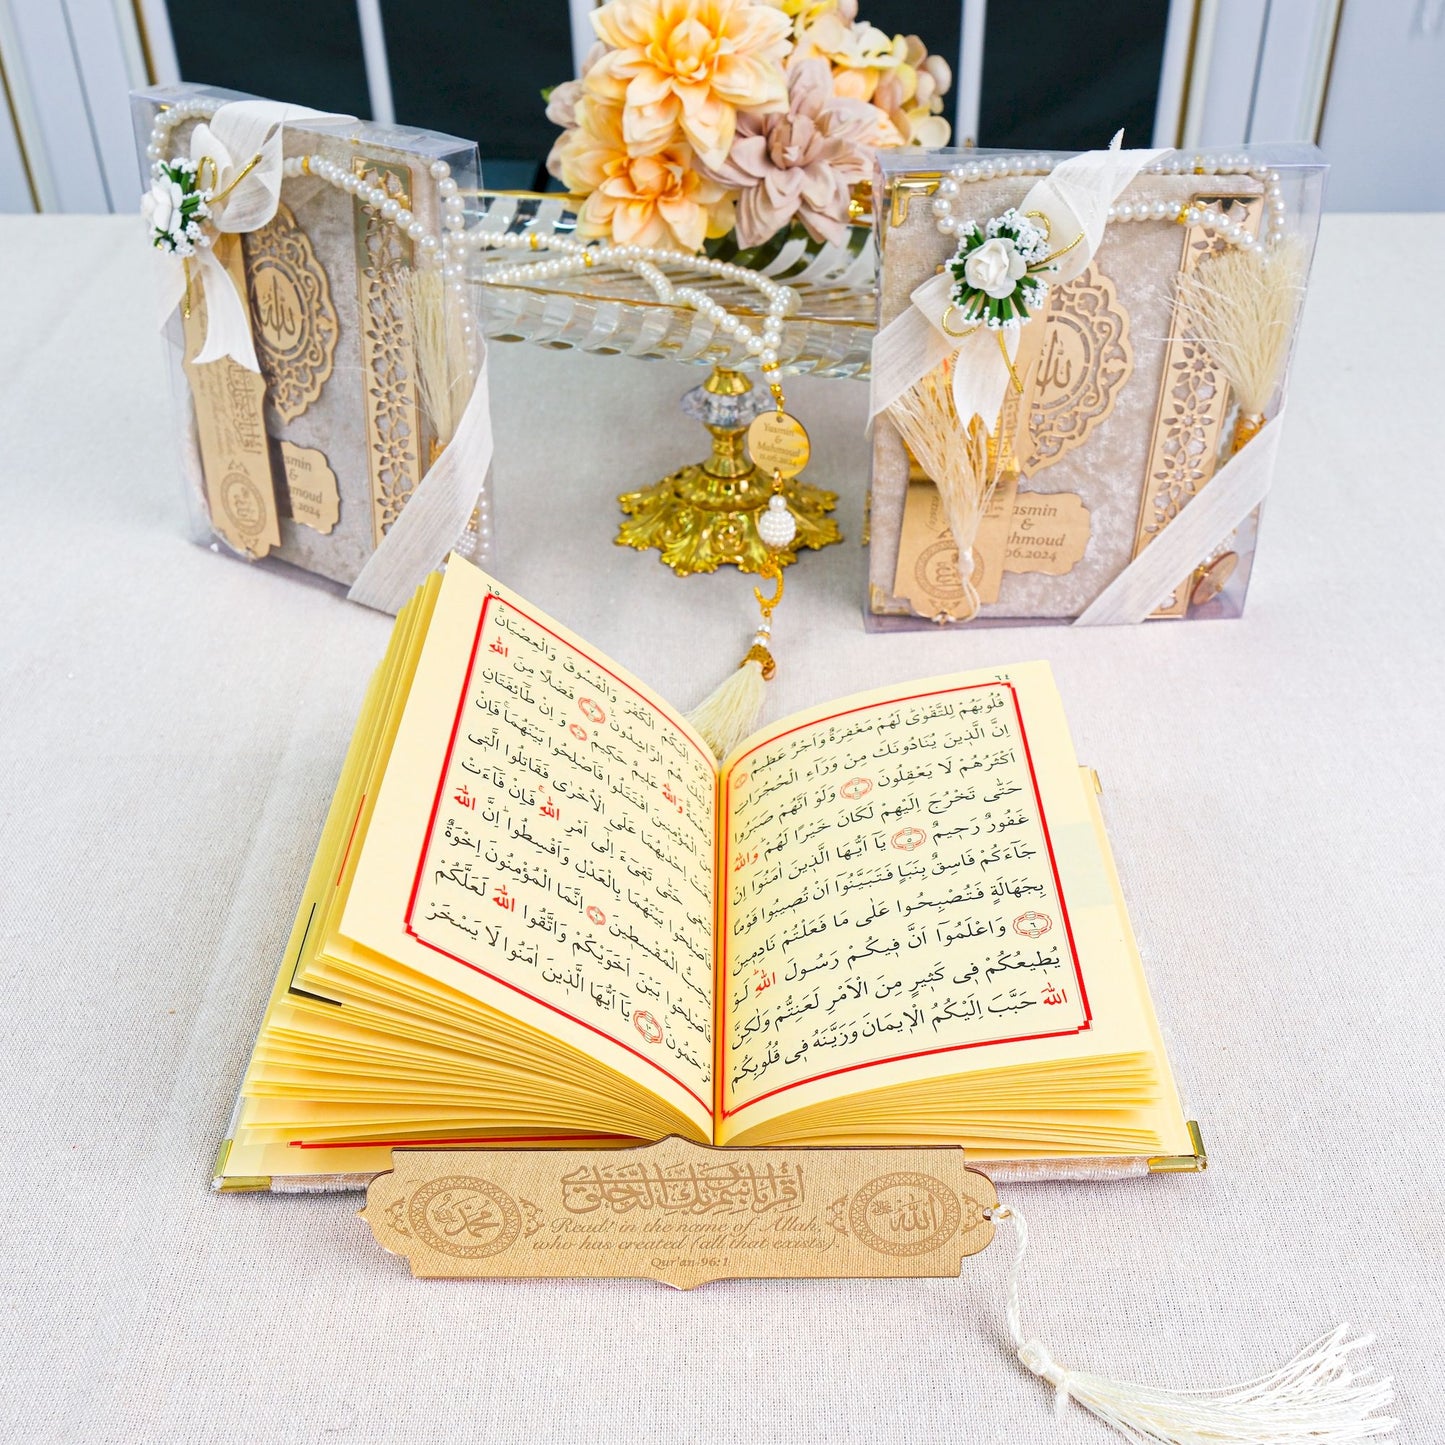 الله
Yasmin
&
Mahmoud
11.06.2024
الله
asmin
&
ahmoud
06.2024
smin
moud
.2024
٦٤
قُلُوبَهُمْ لِلتَّقْوٰىۜ لَهُمْ مَغْفِرَةٌ وَاَجْرٌ عَظٖيمٌ
اِنَّ الَّذٖينَ يُنَادُونَكَ مِنْ وَرَٓاءِ الْحُجُرَاتِ
اَكْثَرُهُمْ لَا يَعْقِلُونَ ٤ وَلَوْ اَنَّهُمْ صَبَرُوا
حَتّٰى تَخْرُجَ اِلَيْهِمْ لَكَانَ خَيْرًا لَهُمْۜ وَاللّٰهُ
غَفُورٌ رَحٖيمٌ ٥ يَٓا اَيُّهَا الَّذٖينَ اٰمَنُٓوا اِنْ
جَٓاءَكُمْ فَاسِقٌ بِنَبَاٍ فَتَبَيَّنُٓوا اَنْ تُصٖيبُوا قَوْمًا
بِجَهَالَةٍ فَتُصْبِحُوا عَلٰى مَا فَعَلْتُمْ نَادِمٖينَ
٦ وَاعْلَمُٓوا اَنَّ فٖيكُمْ رَسُولَ اللّٰهِۜ لَوْ
يُطٖيعُكُمْ فٖى كَثٖيرٍ مِنَ الْاَمْرِ لَعَنِتُّمْ وَلٰكِنَّ
اللّٰهَ حَبَّبَ اِلَيْكُمُ الْاٖيمَانَ وَزَيَّنَهُ فٖى قُلُوبِكُمْ
٦٥
اِلَيْكُمُ الْكُفْرَ وَالْفُسُوقَ وَالْعِصْيَانَۜ
هُمُ الرَّاشِدُونَۙ ٧ فَضْلًا مِنَ اللّٰهِ
وَنِعْمَةًۜ وَاللّٰهُ عَلٖيمٌ حَكٖيمٌ ٨ وَاِنْ طَٓائِفَتَانِ
مِنَ الْمُؤْمِنٖينَ اقْتَتَلُوا فَاَصْلِحُوا بَيْنَهُمَاۚ فَاِنْ
بَغَتْ اِحْدٰيهُمَا عَلَى الْاُخْرٰى فَقَاتِلُوا الَّتٖى
تَبْغٖى حَتّٰى تَفٖٓىءَ اِلٰٓى اَمْرِ اللّٰهِۚ فَاِنْ فَٓاءَتْ
فَاَصْلِحُوا بَيْنَهُمَا بِالْعَدْلِ وَاَقْسِطُواۜ اِنَّ اللّٰهَ
يُحِبُّ الْمُقْسِطٖينَ ٩ اِنَّمَا الْمُؤْمِنُونَ اِخْوَةٌ
فَاَصْلِحُوا بَيْنَ اَخَوَيْكُمْ وَاتَّقُوا اللّٰهَ لَعَلَّكُمْ
تُرْحَمُونَ ١٠ يَٓا اَيُّهَا الَّذٖينَ اٰمَنُوا لَا يَسْخَرْ
محمد
اقرأ باسم ربك الذي خلق
Read! in the name of Allah,
who has created (all that exists)
Qur'an-96:1
الله